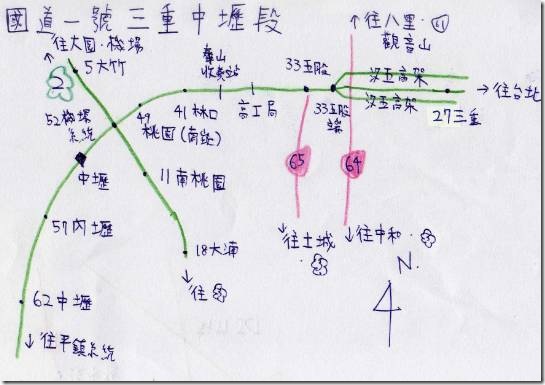 國道一號三重中壢段
↑往大園.機場
5大竹
2
52機場
系統
中壢
57內壢
62中壢
↓往平鎮系統
49
桃園(南路)
11南桃園
18大湳
↓往③
41林口
泰山
收費站
高工局
33五股
33五股
端
汐五高架
汐五高架
↑往八里.61
觀音山
→往台北
27三重
65
64
↓往土城
.③
↓往中和.③
N.